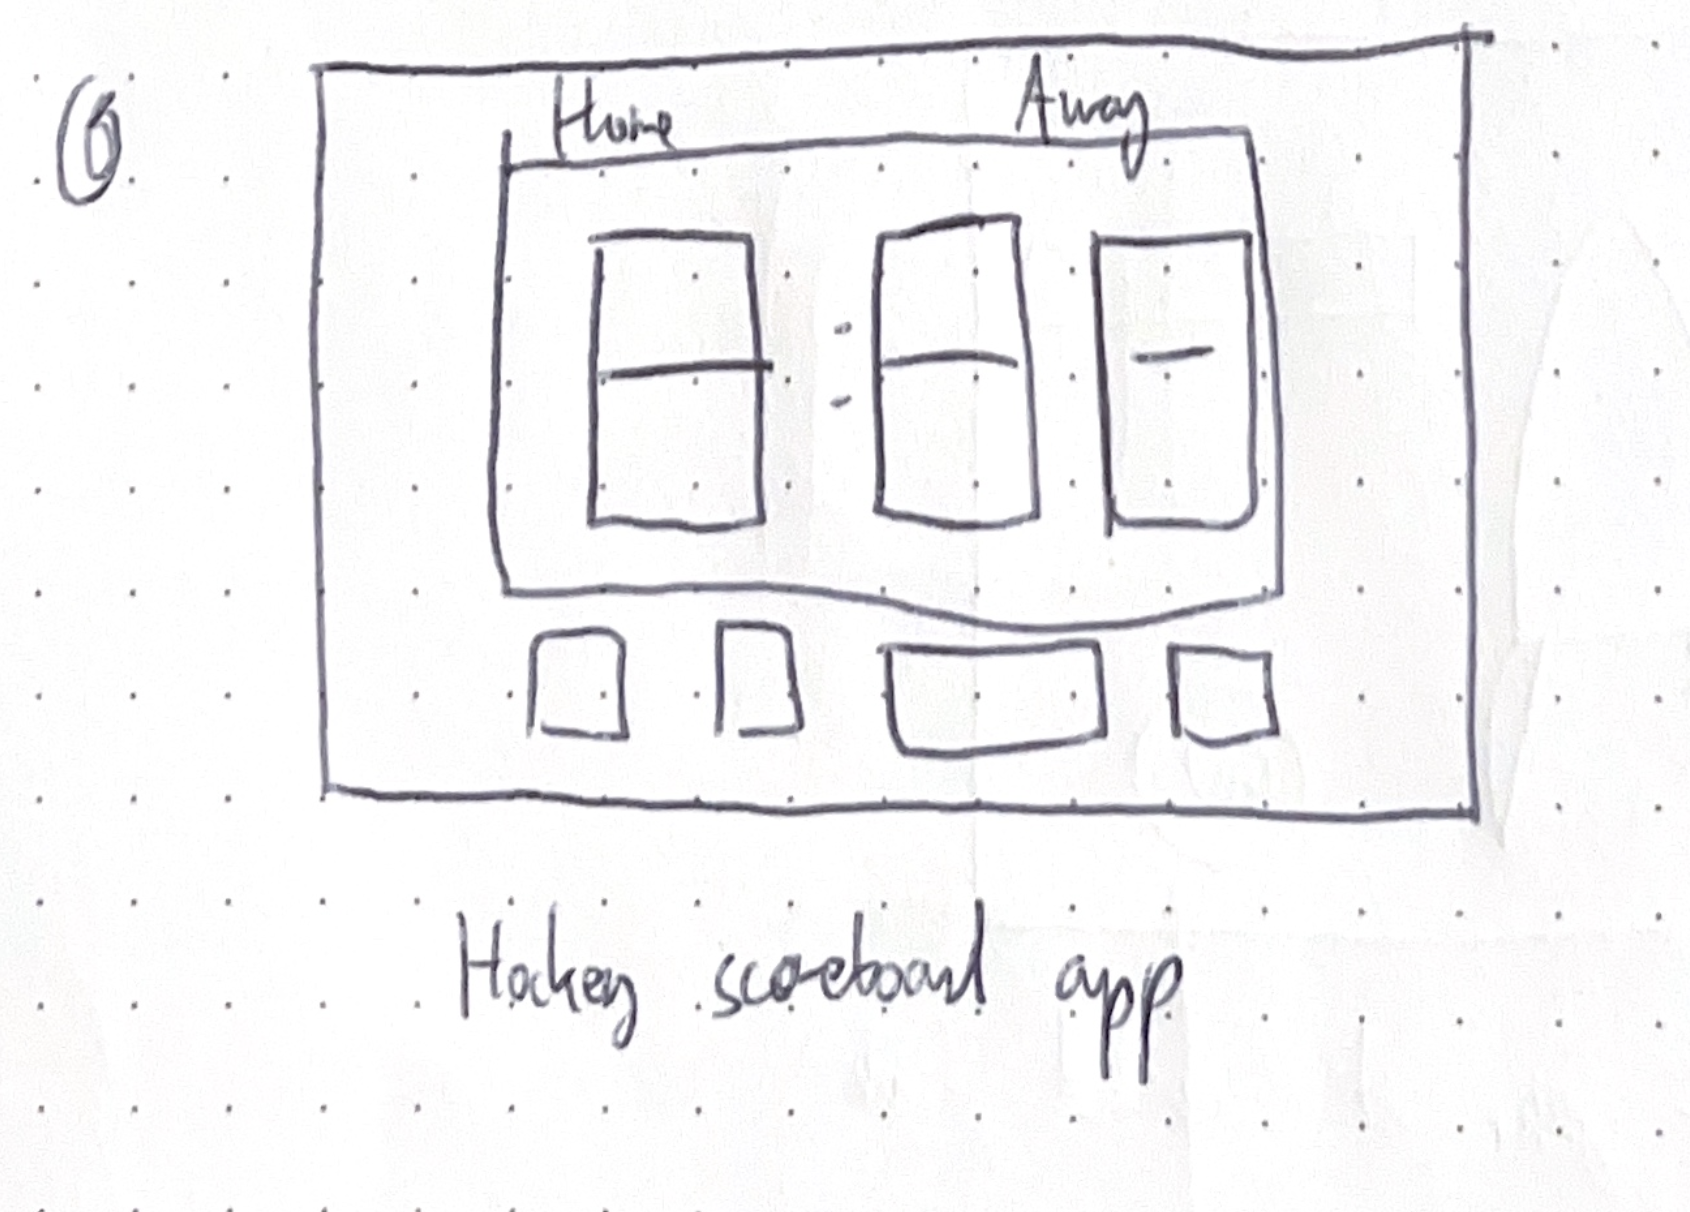 Home Away
Hockey scoreboard app